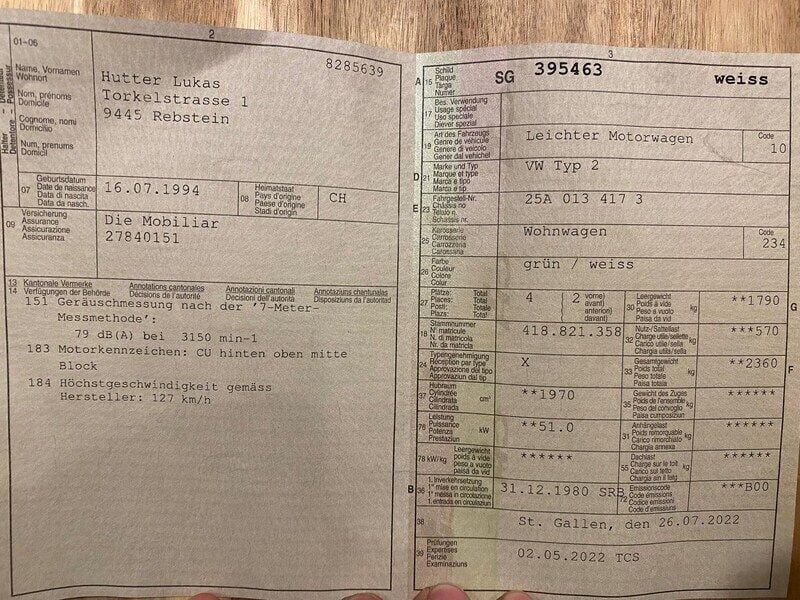 2
01-06
8285639
Halter
Detenteur - Possessur
Name, Vornamen
Wohnort
Nom, prénoms
Domicile
Cognome, nomi
Domicilio
Num, prenums
Domicil
Hutter Lukas
Torkelstrasse 1
9445 Rebstein
07
Geburtsdatum
Date de naissance
Data di nascita
Data da nasch.
16.07.1994
08
Heimatstaat
Pays d'origine
Paese d'origine
Stadi d'origin
CH
09
Versicherung
Assurance
Assicurazione
Assicuranza
Die Mobiliar
27840151
13
14
Kantonale Vermerke
Verfügungen der Behörde
Annotations cantonales
Décisions de l'autorité
Annotazioni cantonali
Decisioni dell'autorità
Annotaziuns chantunalas
Disposiziuns da l'autoritad
151 Geräuschmessung nach der '7-Meter-
Messmethode':
79 dB(A) bei 3150 min-1
183 Motorkennzeichen: CU hinten oben mitte
Block
184 Höchstgeschwindigkeit gemäss
Hersteller: 127 km/h
3
A 15
Schild
Plaque
Targa
Numer
SG 395463 weiss
17
Bes. Verwendung
Usage spécial
Uso speciale
Diever spezial
19
Art des Fahrzeugs
Genre de véhicule
Genere di veicolo
Gener dal vehichel
Leichter Motorwagen
Code
10
D 21
Marke und Typ
Marque et type
Marca e tipo
Marca e tip
VW Typ 2
E 23
Fahrgestell-Nr.
Châssis no
Telaio n.
Schassis nr.
25A 013 417 3
25
Karosserie
Carrosserie
Carrozzeria
Carossaria
Wohnwagen
Code
234
26
Farbe
Couleur
Colore
Colur
grün / weiss
27
Plätze: Total
Places: Total
Posti: Totale
Plazs: Total
4
( 2 vorne)
avant)
anteriori)
davant)
30
Leergewicht
Poids à vide
Peso a vuoto
Paisa da vid
kg
**1790
G
18
Stammnummer
N° matricule
N. di matricola
Nr. da matricla
418.821.358
32
Nutz-/Sattellast
Charge utile/sellette
Carico utile/sella
Chargia utila/sella
kg
***570
24
Typengenehmigung
Réception par type
Approvazione del tipo
Approvaziun dal tip
X
33
Gesamtgewicht
Poids total
Peso totale
Paisa totala
kg
**2360
F
37
Hubraum
Cylindrée
Cilindrata
Cilindrada
cm³
**1970
35
Gewicht des Zuges
Poids de l'ensemble
Peso del convoglio
Paisa cumposiziun
kg
******
76
Leistung
Puissance
Potenza
Prestaziun
kW
**51.0
31
Anhängelast
Poids remorquable
Carico rimorchiato
Chargia annexa
kg
******
78 kW/kg
Leergewicht
poids à vide
peso a vuoto
paisa da vid
******
55
Dachlast
Charge sur le toit
Carico sul tetto
Chargia sin il tetg
kg
******
B 36
1. Inverkehrsetzung
1re mise en circulation
1a messa in circolazione
1. entrada en circulaziun
31.12.1980 SRB
72
Emissionscode
Code émissions
Codice emissioni
Code d'emissiuns
***B00
38
St. Gallen, den 26.07.2022
39
Prüfungen
Expertises
Perizie
Examinaziuns
02.05.2022 TCS